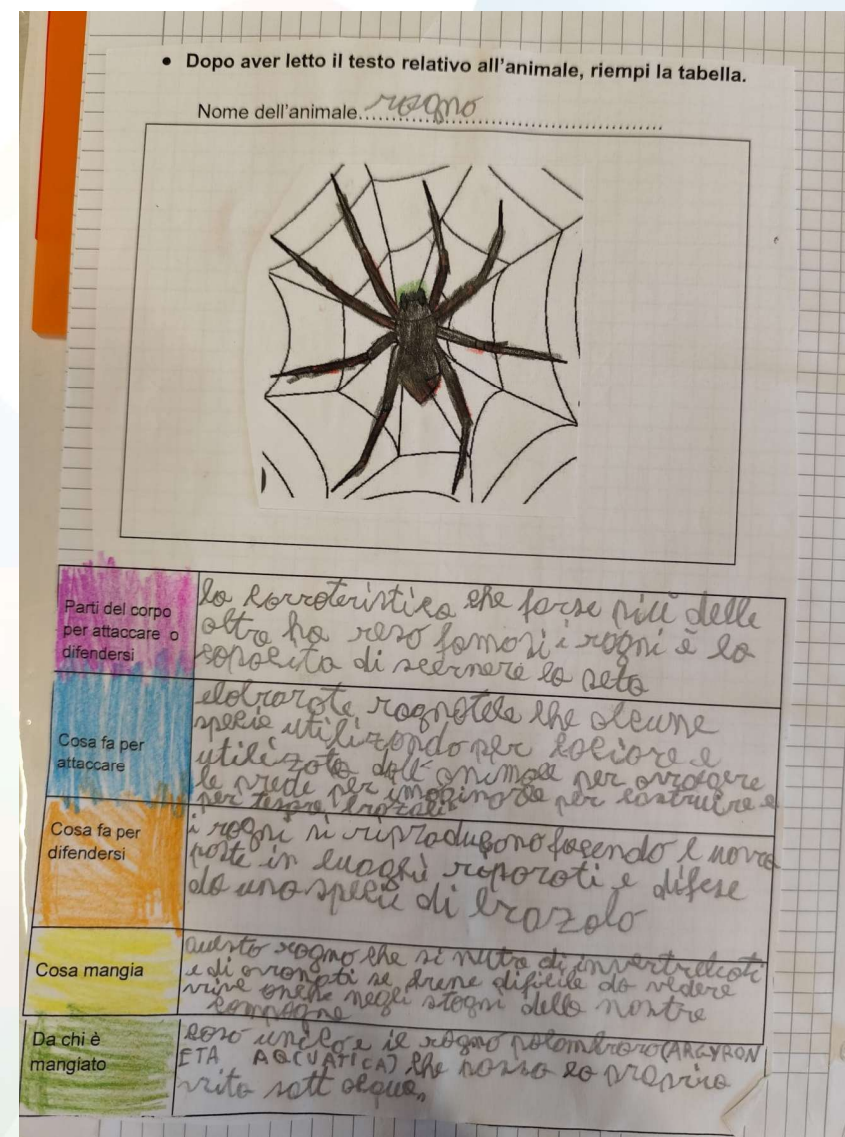 • Dopo aver letto il testo relativo all'animale, riempi la tabella.
Nome dell'animale ragno
Parti del corpo
per attaccare o
difendersi
la carrateristica che farse più delle
altra ha reso famosi i ragni è la
capacita di secrnere la seta
Cosa fa per
attaccare
elobrarate ragnatele che alcune
specie utilizzando per caciare e
utilizzata dall'animale per avvolgere
le prede per per costruire e
per
Cosa fa per
difendersi
i ragni si riproducono facendo l uova
poste in luoghi riparati e difese
da una specie di brozolo
Cosa mangia
questo ragno che si nutra di invertrebati
e di avannati se bene dificile da vedere
vive anche negli stagni delle nostre
campagne
Da chi è
mangiato
caso unico e il ragno palombraro (ARGYRON
ETA AQCUATICA) che passa la propria
vita sott acqua,